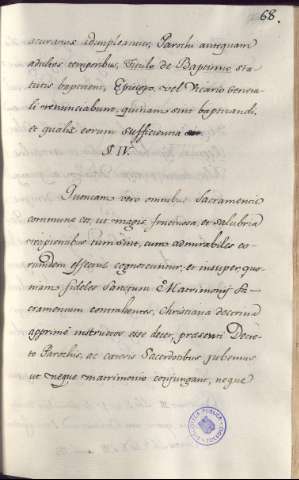 68.
accuratius adimpleantur, Parochi antequam
adultos temporibus, Titulo de Baptismo sta-
tutis baptizent, Episcopo, vel Vicario Genera-
li renunciabunt, quinam sint baptizandi,
et qualis eorum sufficientia
§. IV.
Quoniam vero omnibus Sacramentis
commune est, ut magis fructuosa, et salubria
recipientibus sint, cum admirabiles eo-
rumdem effectus cognoscuntur, et insuper quo-
niam fideles Sanctum Matrimonij Sa-
cramentum contrahentes, Christiana doctrina
apprimè instructos esse decet, presenti Decre-
to Parochis, ac ceteris Sacerdotibus jubemus
ut neque matrimonio conjungant, neque
BIBLIOTECA PUBLICA
TOLEDO